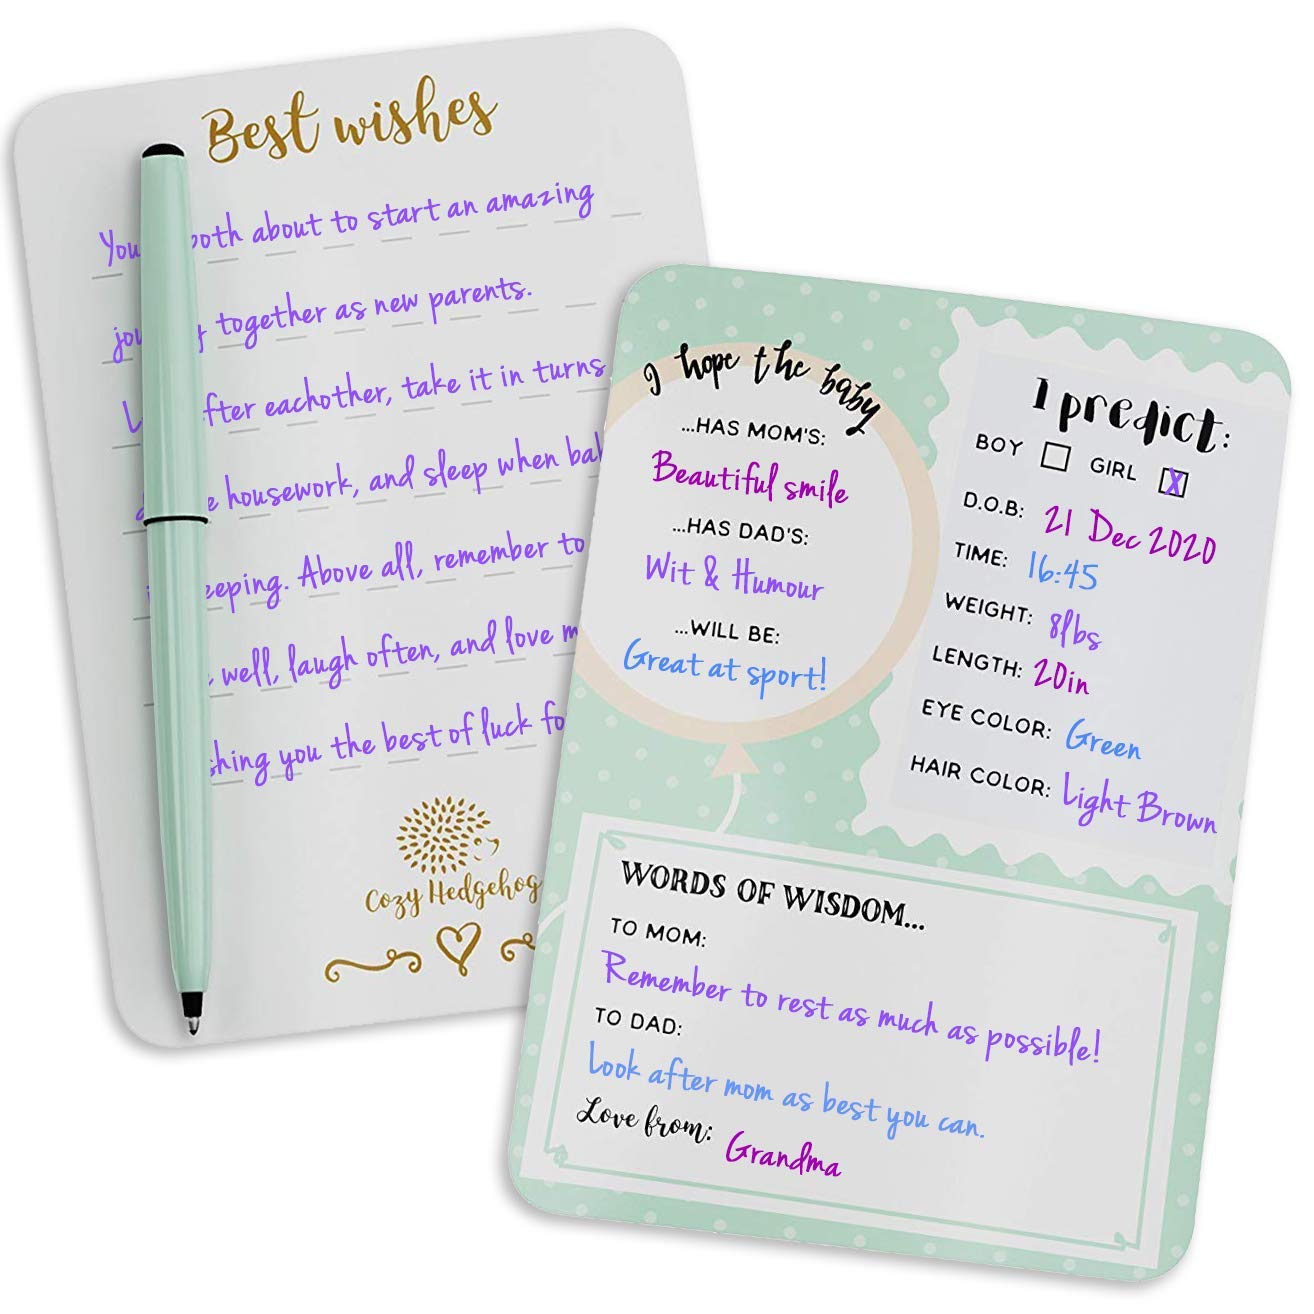 Best wishes
You both about to start an amazing
together as new parents.
eachother, take it in turns
housework, and sleep when
Above all, remember to
well, laugh often, and love
you the best of luck
Cozy Hedgehog
I hope the baby
...HAS MOM'S:
Beautiful smile
...HAS DAD'S:
Wit & Humour
...WILL BE:
Great at sport!
I predict:
BOY GIRL X
D.O.B: 21 Dec 2020
TIME: 16:45
WEIGHT: 8lbs
LENGTH: 20in
EYE COLOR: Green
HAIR COLOR: Light Brown
WORDS OF WISDOM...
TO MOM:
Remember to rest as much as possible!
TO DAD:
Look after mom as best you can.
Love from: Grandma